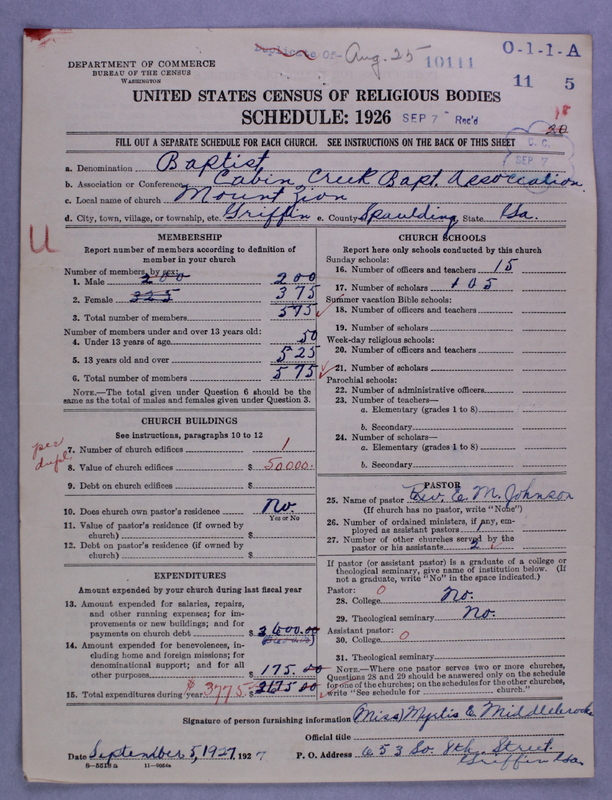 Duplicate Of- Aug. 25 10111 O-1-1-A
DEPARTMENT OF COMMERCE
BUREAU OF THE CENSUS
WASHINGTON
11 5
UNITED STATES CENSUS OF RELIGIOUS BODIES
SCHEDULE: 1926 SEP 7 Rec'd
18
20
FILL OUT A SEPARATE SCHEDULE FOR EACH CHURCH. SEE INSTRUCTIONS ON THE BACK OF THIS SHEET
C. C.
SEP 7
a. Denomination Baptist
b. Association or Conference Cabin Creek Bapt. Association
c. Local name of church Mount Zion
d. City, town, village, or township, etc. Griffin e. County Spaulding State Ga.
U
MEMBERSHIP
Report number of members according to definition of
member in your church
Number of members, by sex:
1. Male 200 200
2. Female 325 375
3. Total number of members 575
Number of members under and over 13 years old:
4. Under 13 years of age 50
5. 13 years old and over 525
6. Total number of members 575
NOTE.—The total given under Question 6 should be
same as the total of males and females given under Question 3.
CHURCH BUILDINGS
See instructions, paragraphs 10 to 12
per
dupl.
7. Number of church edifices 1
8. Value of church edifices $ 50000.
9. Debt on church edifices $
10. Does church own pastor's residence No.
Yes or No
11. Value of pastor's residence (if owned by
church) $
12. Debt on pastor's residence (if owned by
church) $
EXPENDITURES
Amount expended by your church during last fiscal year
13. Amount expended for salaries, repairs,
and other running expenses; for im-
provements or new buildings; and for
payments on church debt $ 3600.00
14. Amount expended for benevolences, in-
cluding home and foreign missions; for
denominational support; and for all
other purposes $ 175.00
15. Total expenditures during year $ 3775 $ 2175 00
CHURCH SCHOOLS
Report here only schools conducted by this church
Sunday schools:
16. Number of officers and teachers 15
17. Number of scholars 105
Summer vacation Bible schools:
18. Number of officers and teachers
19. Number of scholars
Week-day religious schools:
20. Number of officers and teachers
21. Number of scholars
Parochial schools:
22. Number of administrative officers
23. Number of teachers—
a. Elementary (grades 1 to 8)
b. Secondary
24. Number of scholars—
a. Elementary (grades 1 to 8)
b. Secondary
PASTOR
25. Name of pastor Rev. E. M. Johnson
(If church has no pastor, write "None")
26. Number of ordained ministers, if any, em-
ployed as assistant pastors 1
27. Number of other churches served by the
pastor or his assistants 2
If pastor (or assistant pastor) is a graduate of a college or
theological seminary, give name of institution below. (If
not a graduate, write "No" in the space indicated.)
Pastor: 0
28. College No.
29. Theological seminary No.
Assistant pastor:
30. College 0
31. Theological seminary
NOTE.—Where one pastor serves two or more churches,
Questions 28 and 29 should be answered only on the schedule
for one of the churches; on the schedules for the other churches,
write "See schedule for church."
Signature of person furnishing information (Miss) Myrtis E Middlebrooks
Official title
Date September 5, 1927, 192 7 P. O. Address 653 So. 8th. Street.
Griffin Ga.
8-5518a 11-9004a